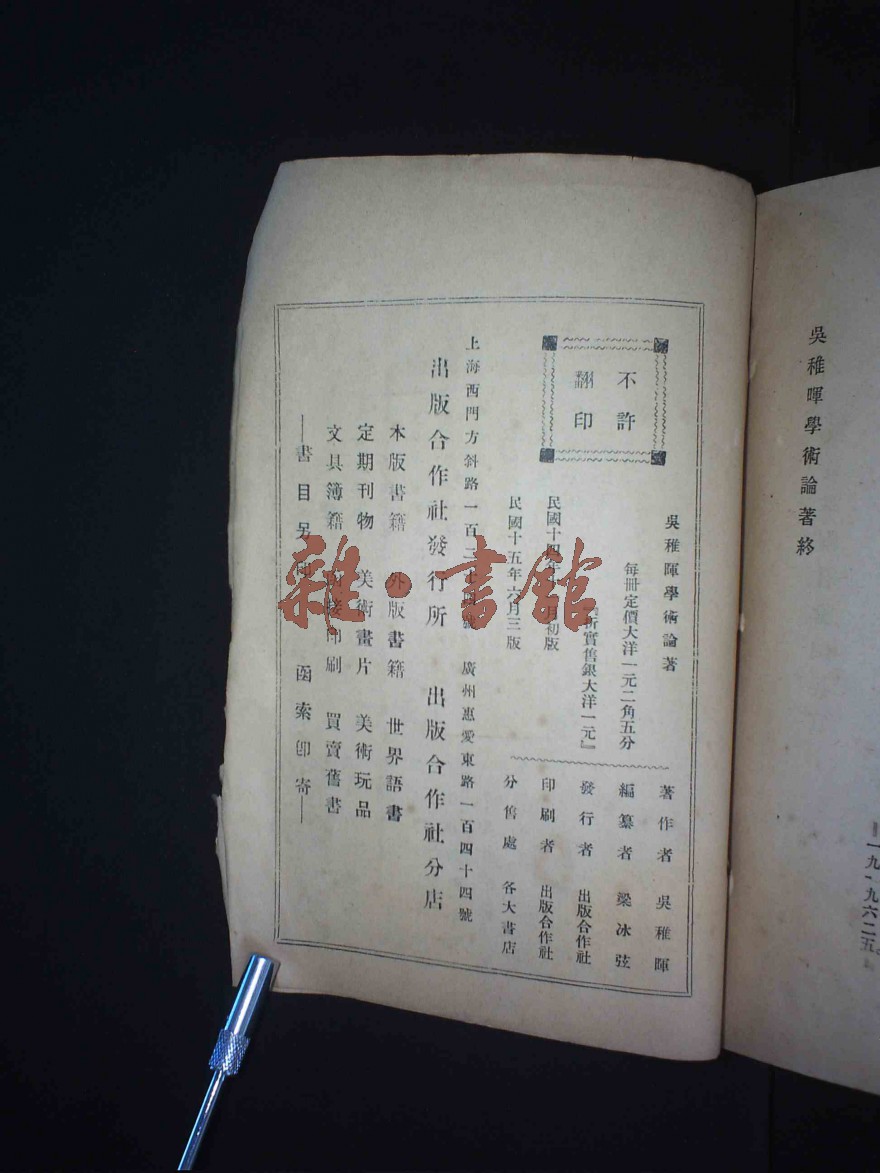 吳稚暉學術論著終
一九、九、六二五。
不許
翻印
吳稚暉學術論著
每冊定價大洋一元二角五分
『折實售銀大洋一元』
民國十四年 月初版
民國十五年六月三版
著作者 吳稚暉
編纂者 梁冰弦
發行者 出版合作社
印刷者 出版合作社
分售處 各大書店
上海西門方斜路一百二 號 廣州惠愛東路一百四十四號
出版合作社發行所 出版合作社分店
本版書籍 外版書籍 世界語書
定期刊物 美術畫片 美術玩品
文具簿籍 印刷 買賣舊書
——書目另 函索卽寄——
雜·書館